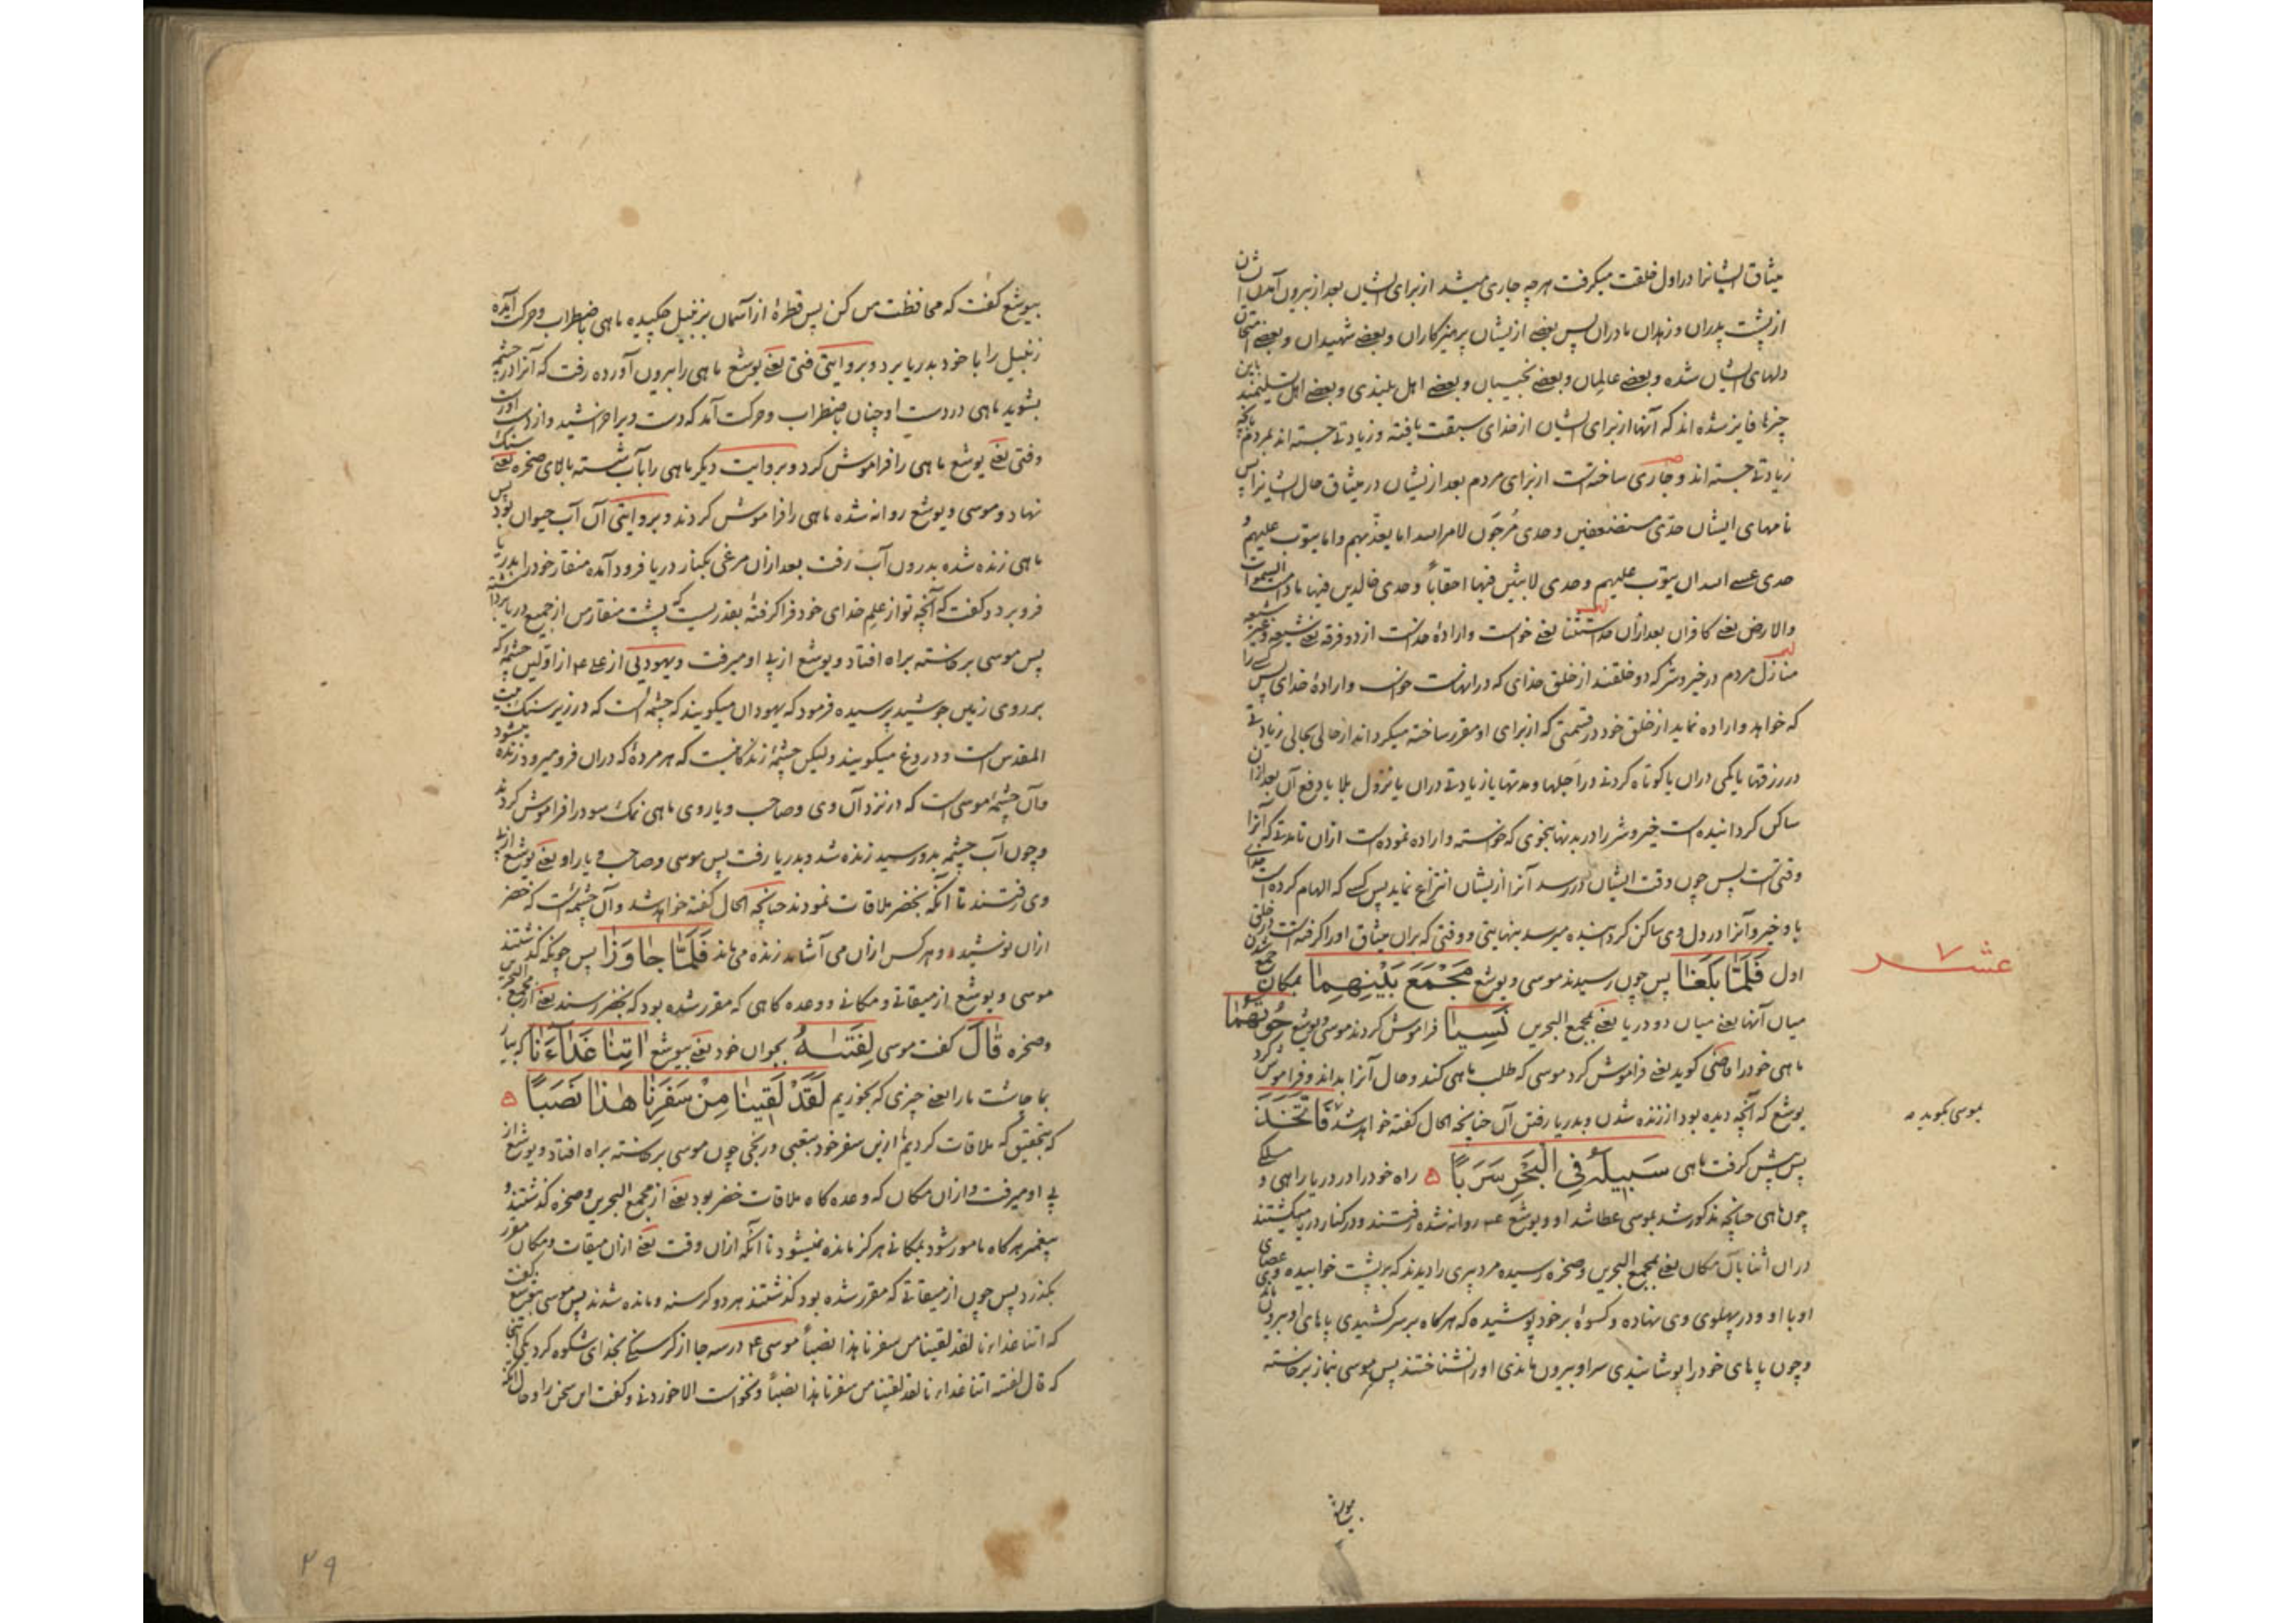 میثاق ایشانرا در اول خلقت میگرفت هرچه جاری میشد از برای ایشان بعد از بیرون آمدن ایشان
از پشت پدران و زهدان مادران پس بعضے ازیشان پرهیزکاران و بعضے شهیدان و بعضے امتحان
دلهای ایشان شده و بعضے عالمان و بعضے نجیبان و بعضے اهل بلندی و بعضے اهل تسلیمند باین
چیزها فایز شده اند که آنها از برای ایشان از خدای سبقت یافته و زیادتے جسته اند بمردم
زیادتے جسته اند و جاری ساخته است از برای مردم بعد ازیشان در میثاق حال ایشانرا پس
نامهای ایشان حدی مستضعفین وحدی مرجون لامر الله اما یعذبهم واما یتوب علیهم و
حدی عسے الله ان یتوب علیهم وحدی لابثین فیها احقاباً وحدی خالدین فیها مادامت السموات
والارض یعنے کافران بعد ازان استثنا یعنے خواست و ارادهٔ خداست از دو فرقه یعنے شیعه و غیر شیعه
منازل مردم در خیر و شر که دو خلقند از خلق خدای که درانهاست خواست و ارادهٔ خدای پس
که خواهد و اراده نماید از خلق خود در قسمتی که از برای او مقرر ساخته میگرداند از حالی بحالی زیادتے
در رزقها یا کمی دران یا کوتاه کردنے در اجلها و مدتها یا زیادتے دران یا نزول بلا یا دفع آن بعد ازان
ساکن گردانیده است خیر و شر را در بدنها بنحوی که خواسته و اراده نموده است ازان تا مدتے که آنرا
وقتی است پس چون وقت ایشان در رسد آنرا ازیشان انتزاع نماید پس کسے که الهام کرده است خدای
باو خیر و آنرا در دل وی ساکن گردانیده میرسد بنهایتی و وقتی که بران میثاق او را گرفته است در خلق
اول فَلَمَّا بَلَغَا پس چون رسیدند موسی و یوشع مَجْمَعَ بَيْنِهِمَا بمکان جمع
عشر ۷
میان آنها یعنے میان دو دریا یعنے بمجمع البحرین نَسِيَا فراموش کردند موسی و یوشع حُوتَهُمَا
ماهی خود را قاضی گوید یعنے فراموش کرد موسی که طلب ماهی کند و حال آنرا بداند و فراموش کرد
یوشع که آنچه دیده بود از زنده شدن و بدریا رفتن آن چنانچه الحال گفته خواهد شد فَاتَّخَذَ
بموسی بگوید
پس پیش گرفت ماهی سَبِيلَهُ فِي الْبَحْرِ سَرَبًا راه خود را در دریا راهی و مسلکے
چون ماهی چنانچه مذکور شد بموسی عطا شد او و یوشع ع روانه شده رفتند و در کنار دریا میگشتند
دران اثنا بآن مکان یعنے بمجمع البحرین و صخره رسیده مرد پیری را دیدند که بر پشت خوابیده و عصای وی
او با او و در پهلوی وی نهاده و کسوهٔ بر خود پوشیده که هرگاه بر سر کشیدی پاهای او بیرون ماندی
و چون پاهای خود را پوشانیدی سر او بیرون ماندی او را نشناختند پس موسی بنماز برخاسته
بیوشع گفت که محافظت من کن پس قطرهٔ از آسمان بر زنبیل چکیده ماهی باضطراب و حرکت آمده
زنبیل را با خود بدریا برد و بروایتی فتی یعنے یوشع ماهی را بیرون آورده رفت که آنرا در چشمه
بشوید ماهی در دست او چنان باضطراب و حرکت آمد که دست ویرا خراشید و از دست او رست
وفتی یعنے یوشع ماهی را فراموش کرد و بروایت دیگر ماهی را بآب شسته بالای صخره یعنے سنگ
نهاد و موسی و یوشع روانه شده ماهی را فراموش کردند و بروایتی آن آب حیوان بود پس
ماهی زنده شده بدرون آب رفت بعد ازان مرغی بکنار دریا فرود آمده منقار خود را بدریا
فرو برد و گفت که آنچه تو از علم خدای خود فرا گرفتهٔ بقدریست که پشت منقار من از جمیع دریا برداشته
پس موسی برخاسته براه افتاد و یوشع از پی او میرفت و یهودیی از علے ع از اولین چشمهٔ که
بر روی زمین جوشید پرسیده فرمود که یهودان میگویند که چشمه است که در زیر سنگ بیت
المقدس است و دروغ میگویند ولیکن چشمهٔ زندگانیست که هر مردهٔ که دران فرو میرود زنده میشود
وآن چشمهٔ موسی است که در نزد آن وی و صاحب و یار وی ماهی نمک سود را فراموش کردند
و چون آب چشمه بدو رسید زنده شد و بدریا رفت پس موسی و صاحب و یار او یعنے یوشع از پی
وی رفتند تا آنکه بخضر ملاقات نمودند چنانچه الحال گفته خواهد شد وآن چشمه است که خضر
ازان نوشیده و هر کس ازان می آشامد زنده می ماند فَلَمَّا جَاوَزَا پس چونکه گذشتند
موسی و یوشع از میقاتے و مکانے و وعده گاهی که مقرر شده بود که بخضر رسند یعنے از مجمع البحرین
و صخره قَالَ گفت موسی لِفَتَاهُ بجوان خود یعنے بیوشع اٰتِنَا غَدَاءَنَا که بیار
بما چاشت ما را یعنے چیزی که بخوریم لَقَدْ لَقِينَا مِنْ سَفَرِنَا هٰذَا نَصَبًا
که بتحقیق که ملاقات کردیم ما ازین سفر خود بتعبی و رنجی چون موسی برخاسته براه افتاد و یوشع از
پی او میرفت و ازان مکان که وعده گاه ملاقات خضر بود یعنے از مجمع البحرین و صخره گذشتند و
پیغمبر هرگاه مامور شود بمکانے هرگز مانده نمیشود تا آنکه ازان وقت یعنے ازان میقات و مکان مقرر
بگذرد پس چون از میقاتے که مقرر شده بود گذشتند هر دو گرسنه و مانده شدند پس موسی بیوشع گفت
که اتنا غداءنا لقد لقینا من سفرنا هذا نصباً موسی ع در سه جا از گرسنگے بخدای شکوه کرد یکی اینجا
که قال لفتیه اتنا غداءنا لقد لقینا من سفرنا هذا نصباً و نخواست الا خوردنے و گفت این سخن را و حال آنکه
۲۹